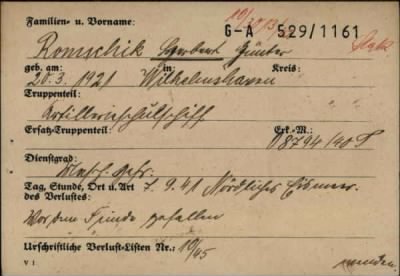 Familien- u. Vorname:
G-A 529/1161
Romschik Herbert Günter
geb. am: in: Kreis:
20.3.1921 Wilhelmshaven
Truppenteil:
Artillerieschulschiff
Ersatz-Truppenteil: Erk.-M.:
8794/40
Dienstgrad:
Masch. Gefr.
Tag, Stunde, Ort u. Art 7.9.41 Nördliches Eismeer
des Verlustes:
Vor dem Feinde gefallen
Urschriftliche Verlust-Listen Nr.: 10/45
V 1.